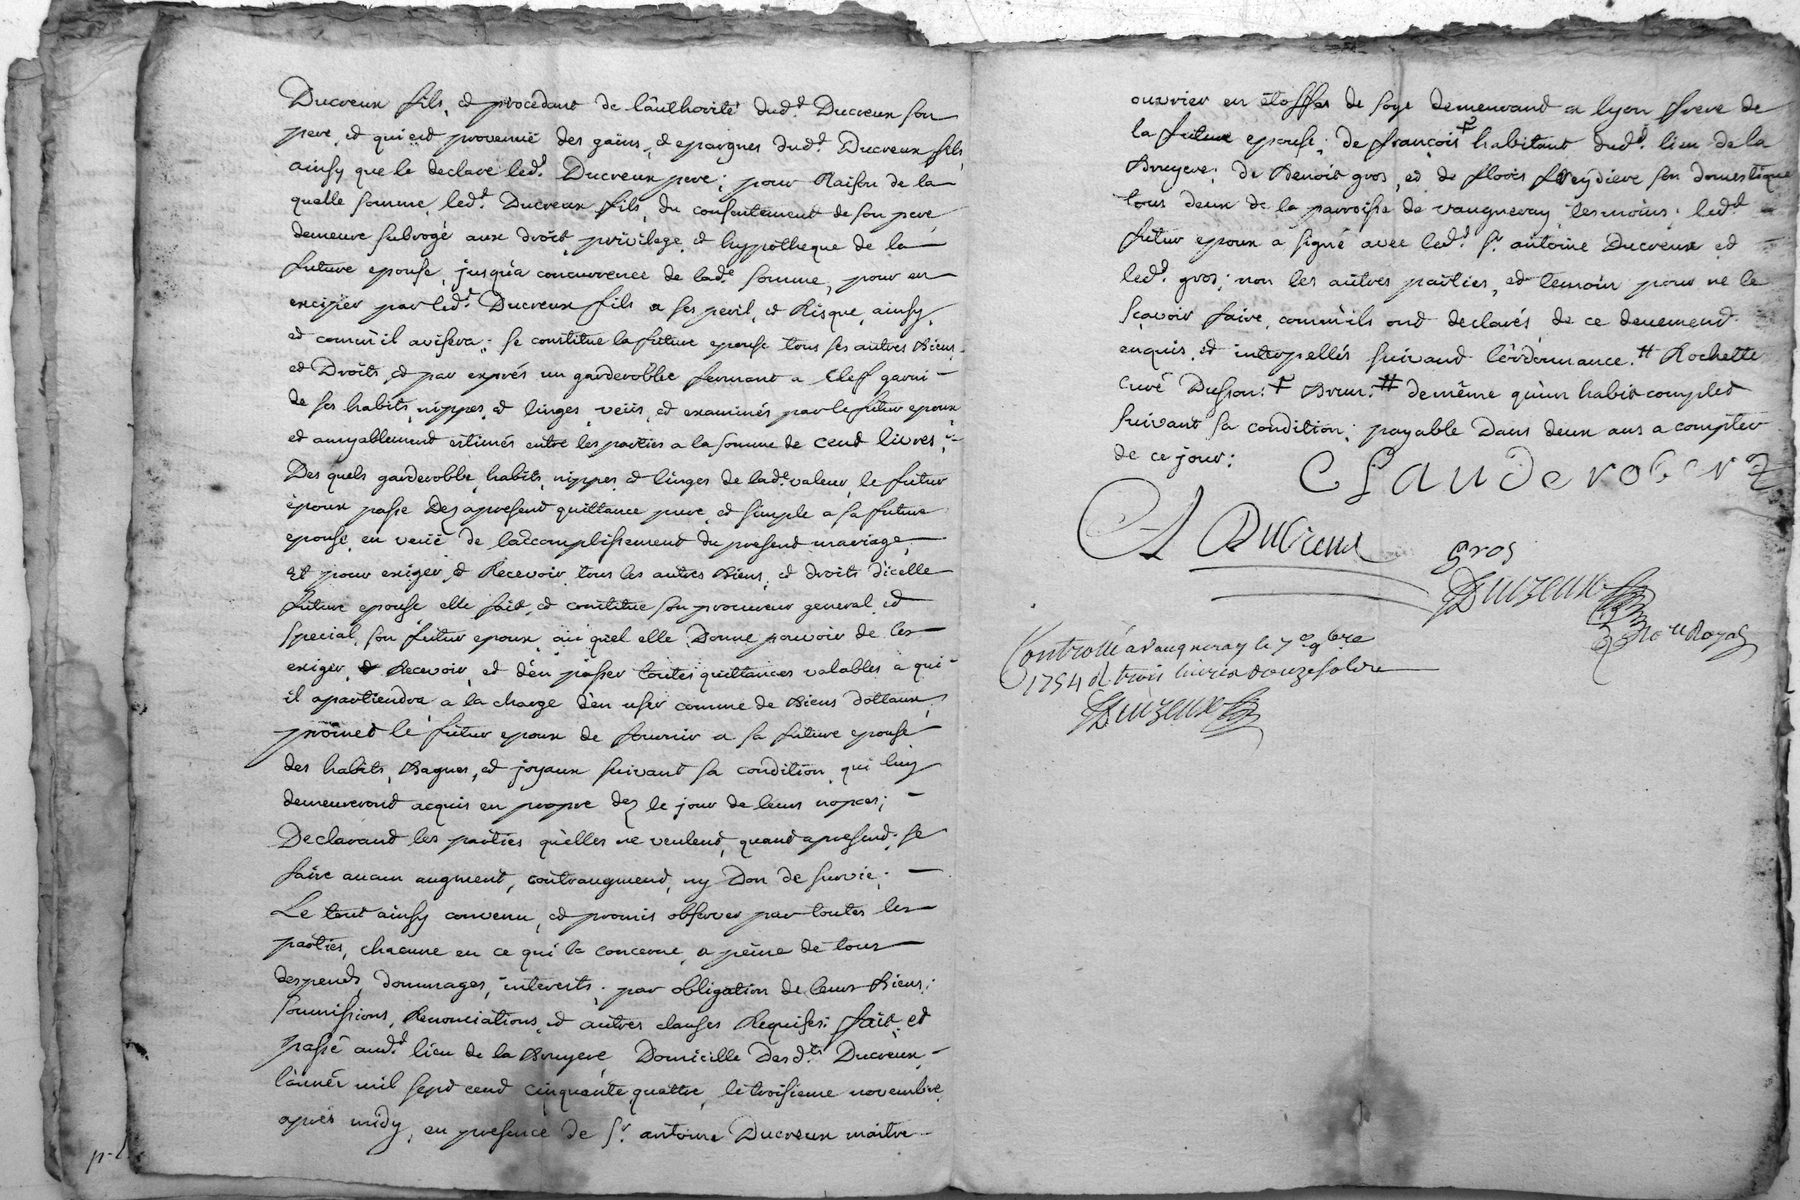 Ducreux fils, et procedant de l'authorité dud.t Ducreux son
pere, et qui est provenüe des gains, et epargnes dud.t Ducreux fils,
ainsy que le declare led.t Ducreux pere; pour Raison de la
quelle somme, led.t Ducreux fils, du consentement de son pere,
demeure subrogé aux droit, privilege, et hypotheque de la
future epouse, jusqu'a concurrence de lad.e somme, pour en
exciper par led.t Ducreux fils a ses peril, et Risque, ainsy,
et comm'il avisera; se constitue la future epouse tous ses autres Biens
et Droits, et par exprés un garderobbe fermant a clef garni
de ses habits, nippes, et linges, veüs, et examinés par le futur epoux
et amyablement estimés entre les parties a la somme de cent livres;
Des quels garderobbe, habits, nippes, et linges de lad.e valeur, le futur
epoux passe Dez apresent quittance pure, et simple a sa future
epouse, en veüe de l'accomplissement du present mariage,
Et pour exiger, et Recevoir, tous les autres Biens, et droits d'icelle
future epouse elle fait, et constitue son procureur general, et
special, son futur epoux, au quel elle Donne pouvoir de les
exiger, et Recevoir, et d'en passer toutes quittances valables a qui
il apartiendra a la charge d'en user comme de Biens dottaux;
promet le futur epoux de fournir a sa future epouse
des habits, Bagues, et joyaux suivant sa condition, qui luy
demeureront acquis en propre dez le jour de leurs nopces;
Declarant les parties qu'elles ne veulent, quant apresent, se
faire aucun augment, contraugment, ny Don de survie;
Le tout ainsy convenu, et promis observer par toutes les
parties, chacune en ce qui la concerne, a peine de tous
despends, dommages, interests; par obligation de leurs Biens;
soumissions, Renonciations, et autres clauses Requises: fait, et
passé aud.t lieu de la Bruyere, Domicille desd.ts Ducreux,
l'année mil sept cent cinquante quattre, le troisieme novembre,
après midy, en presence de S.r antoine Ducreux maitre
ouvrier en étoffes de soye demeurant a lyon frere de
la future epouse; de françois ⹋ habitant dud.t lieu de la
Bruyere; de Benoit gros, et de
tous deux de la parroisse de vaugneray tesmoins; led.t
futur epoux a signé avec led.t S.r antoine Ducreux et
led.t gros; non les autres parties, et temoin pour ne le
sçavoir faire, comm'ils ont declarés de ce deuement
enquis, et interpellés suivant l'ordonnance. # Rochette
curé Brun: # de même qu'un habit complet
suivant sa condition; payable Dans deux ans a compter
de ce jour;
Claude robert
A Ducreux
Gros
Duizeux
Controllé a Vaugneray le 7e 9bre
1754 Rt trois livres douze sols
Duizeux